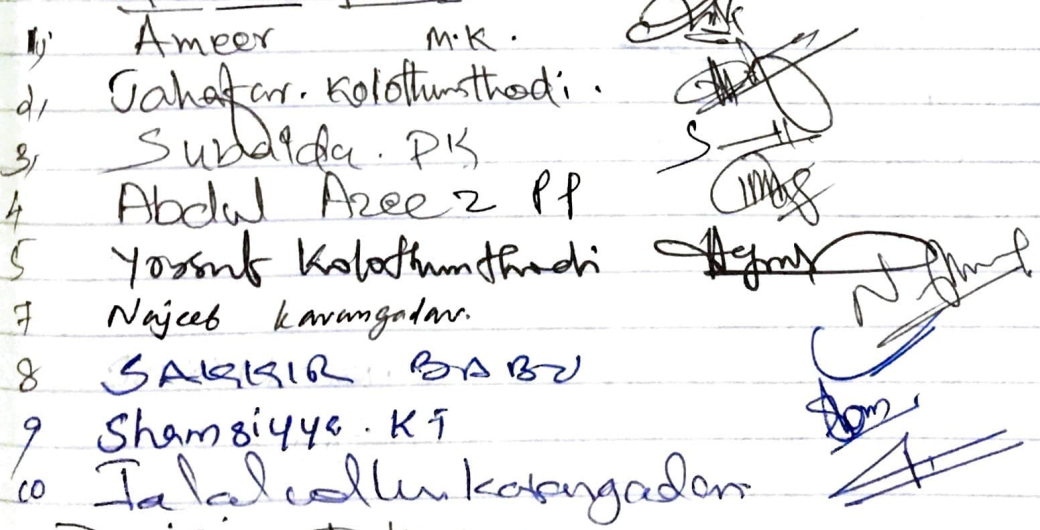 1) Ameer M.K.
2, Jahafar. Kolothumthodi.
3, Subaida. PK
4 Abdul Azeez PP
5 Yoosuf Kolothumthodi
7 Najeeb Karangadan.
8 SAKKIR BABU
9 Shamsiyya. KT
10 Jalaludheen Karangadan